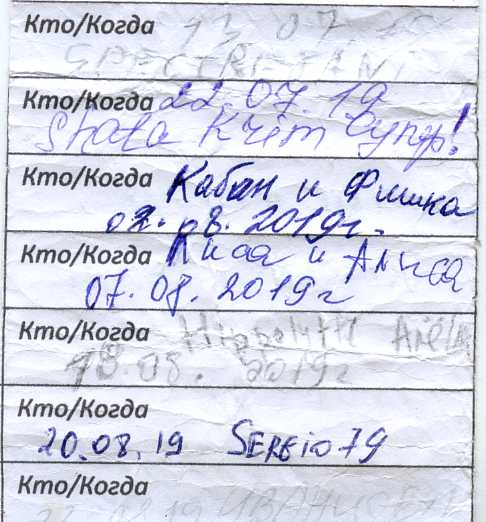 Кто/Когда 13 07
SPECTR
Кто/Когда 22.07.19
Shata Krim Супер!
Кто/Когда Кабан и Фишка
02.08.2019г.
Кто/Когда Киса и Алиса
07.08.2019г
Кто/Когда Hippolytt Ariel
18.08. 2019г
Кто/Когда
20.08.19 SERGIO79
Кто/Когда